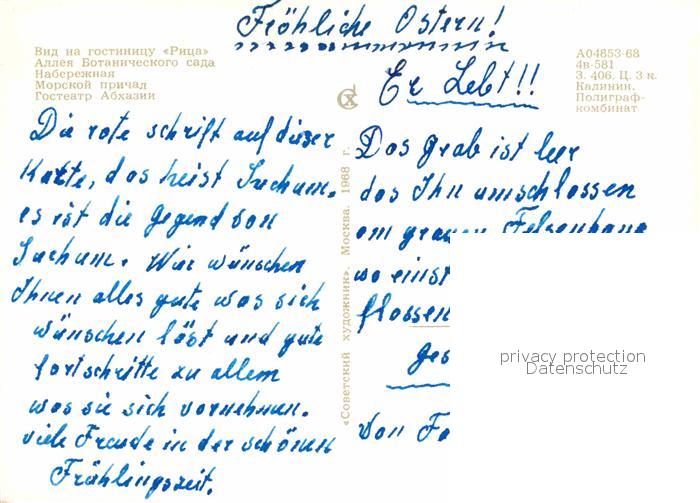 Fröhliche Ostern!
Вид на гостиницу «Рица»
Аллея Ботанического сада
Набережная
Морской причал
Гостеатр Абхазии
А04853-68
4в-581
З. 406. Ц. 3 к.
Калинин.
Полиграф-
комбинат
Er Lebt!!
Die rote schrift auf dieser
Karte, das heist Suchum.
es ist die Gegend von
Suchum. Wir wünschen
Ihnen alles gute was sich
wünschen löst und gute
fortschritte zu allem
was sie sich vornehmen.
viele Freude in der schönen
Frühlingszeit.
«Советский художник». Москва. 1968 г.
Das grab ist leer
das Ihn umschlossen
am grauen Felsenhang
wo einst
flossen
Ges
Von Fa
privacy protection
Datenschutz